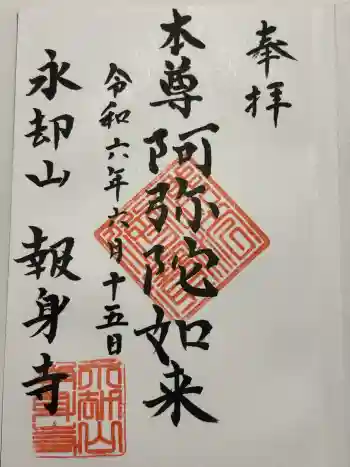 奉拝
本尊阿弥陀如来
令和六年六月十五日
永却山 報身寺